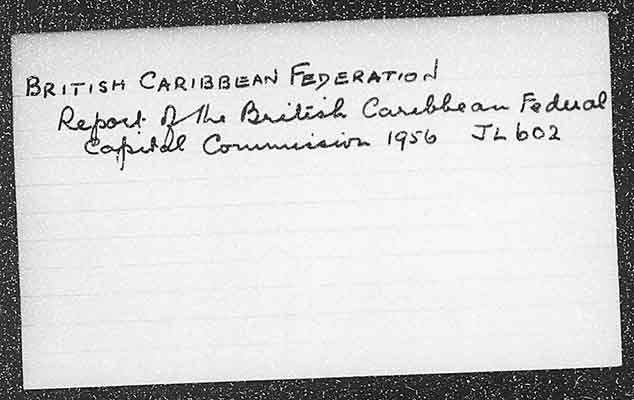 BRITISH CARIBBEAN FEDERATION
Report of the British Caribbean Federal
Capital Commission 1956 JL602